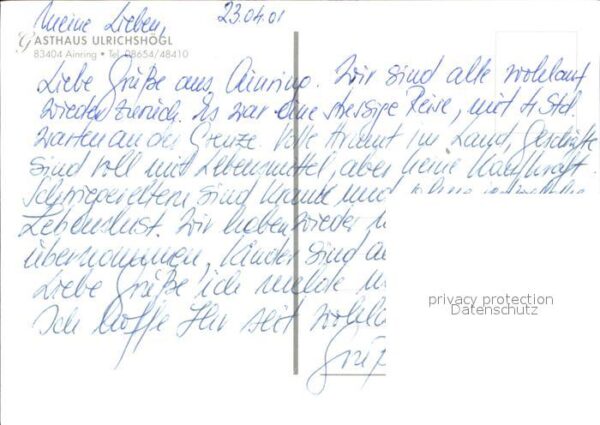 Meine Lieben, 23.04.01
GASTHAUS ULRICHSHÖGL
83404 Ainring • Tel. 08654/48410
Liebe Grüße aus Ainring. Wir sind alle wohlauf
wieder zurück. Es war eine stressige Reise, mit 4 Std.
warten an der Grenze. Volle Armut im Land, Geschäfte
sind voll mit Lebensmittel, aber keine Kaufkraft.
Schwiegereltern sind krank und ohne
Lebenslust. Wir haben wieder
übernommen. Kinder sind
Liebe Grüße ich melde
Ich hoffe Ihr seit
Grüße
privacy protection
Datenschutz